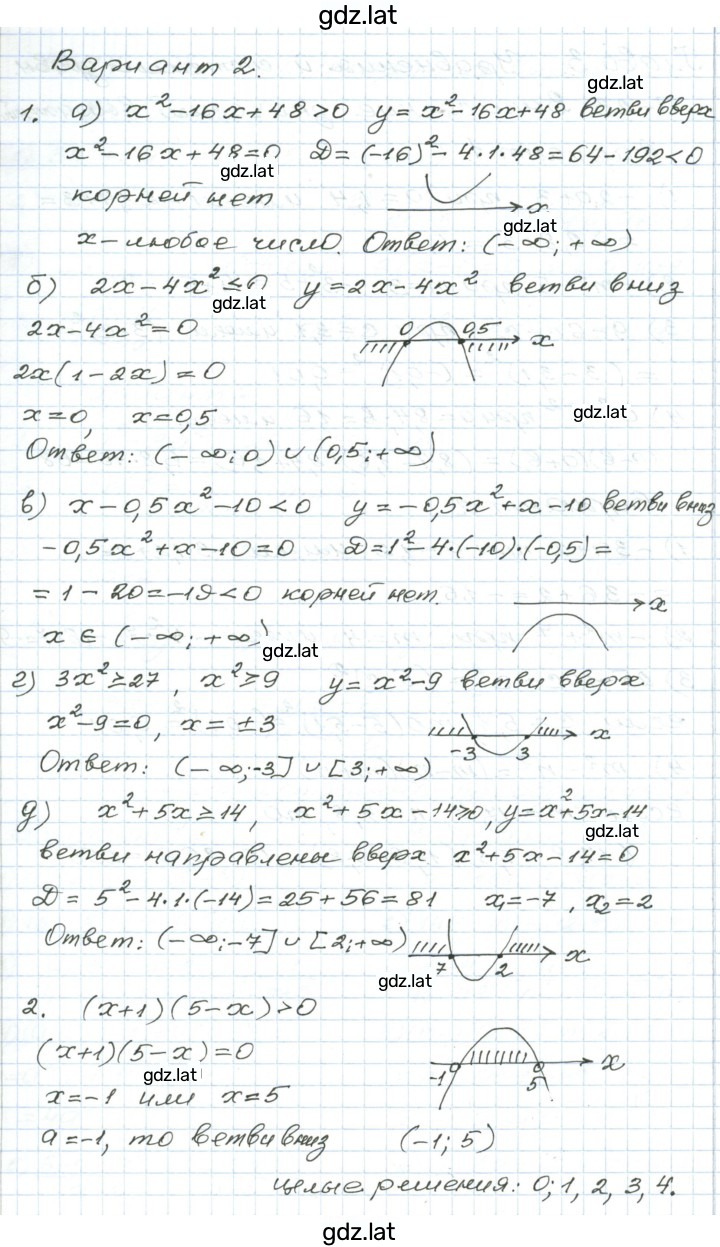 gdz.lat
Вариант 2.
gdz.lat
1. а) x²-16x+48>0 y= x²-16x+48 ветви вверх
x²-16x+48=0 D= (-16)²-4·1·48=64-192<0
gdz.lat
корней нет
x
gdz.lat
x-любое число. Ответ: (-∞;+∞)
б) 2x-4x²≤0 y=2x-4x² ветви вниз
gdz.lat
2x-4x²=0 0 0,5 x
2x(1-2x)=0
x=0, x=0,5
gdz.lat
Ответ: (-∞;0)∪(0,5;+∞)
в) x-0,5x²-10<0 y=-0,5x²+x-10 ветви вниз
-0,5x²+x-10=0 D=1²-4·(-10)·(-0,5)=
=1-20=-19<0 корней нет. x
x∈(-∞;+∞)
gdz.lat
г) 3x²≥27, x²≥9 y= x²-9 ветви вверх
x²-9=0, x=±3 -3 3 x
Ответ: (-∞;-3]∪[3;+∞)
д) x²+5x≥14, x²+5x-14≥0, y=x²+5x-14
gdz.lat
ветви направлены вверх x²+5x-14=0
D= 5²-4·1·(-14)=25+56=81 x₁=-7, x₂=2
Ответ: (-∞;-7]∪[2;+∞) 7 2 x
gdz.lat
2. (x+1)(5-x)>0
(x+1)(5-x)=0 -1 5 x
gdz.lat
x=-1 или x=5
a=-1, то ветви вниз (-1; 5)
целые решения: 0; 1, 2, 3, 4.
gdz.lat